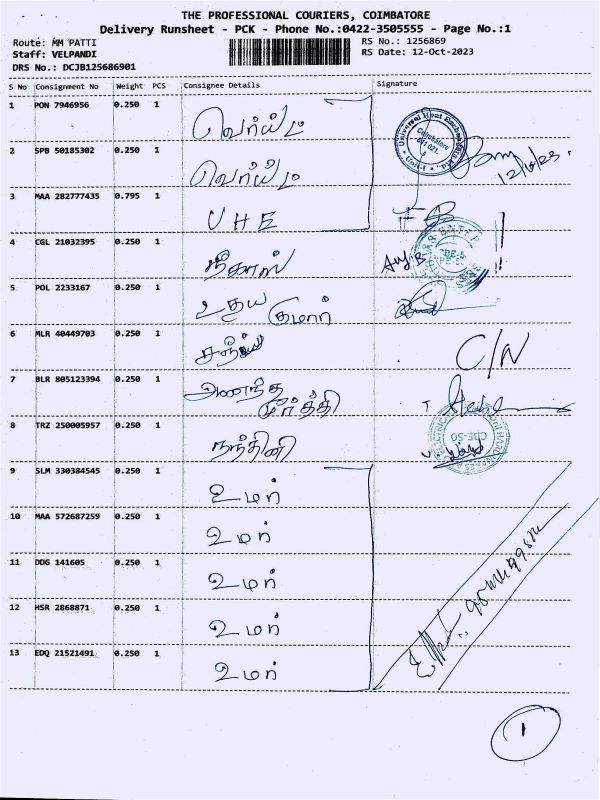 THE PROFESSIONAL COURIERS, COIMBATORE
Delivery Runsheet - PCK - Phone No.:0422-3505555 - Page No.:1
Route: MM PATTI RS No.: 1256869
Staff: VELPANDI RS Date: 12-Oct-2023
DRS No.: DCJB125686901
S No Consignment No Weight PCS Consignee Details Signature
1 PON 7946956 0.250 1
2 SPB 50185302 0.250 1
3 MAA 282777435 0.795 1 UHE
4 CGL 21032395 0.250 1
5 POL 2233167 0.250 1 உதய குமார்
6 MLR 40449703 0.250 1 C/N
7 BLR 805123394 0.250 1 அனந்த மூர்த்தி
8 TRZ 250005957 0.250 1 நந்தினி
9 SLM 330384545 0.250 1 உமர்
10 MAA 572687259 0.250 1 உமர்
11 DDG 141605 0.250 1 உமர்
12 HSR 2868871 0.250 1 உமர்
13 EDQ 21521491 0.250 1 உமர்
1